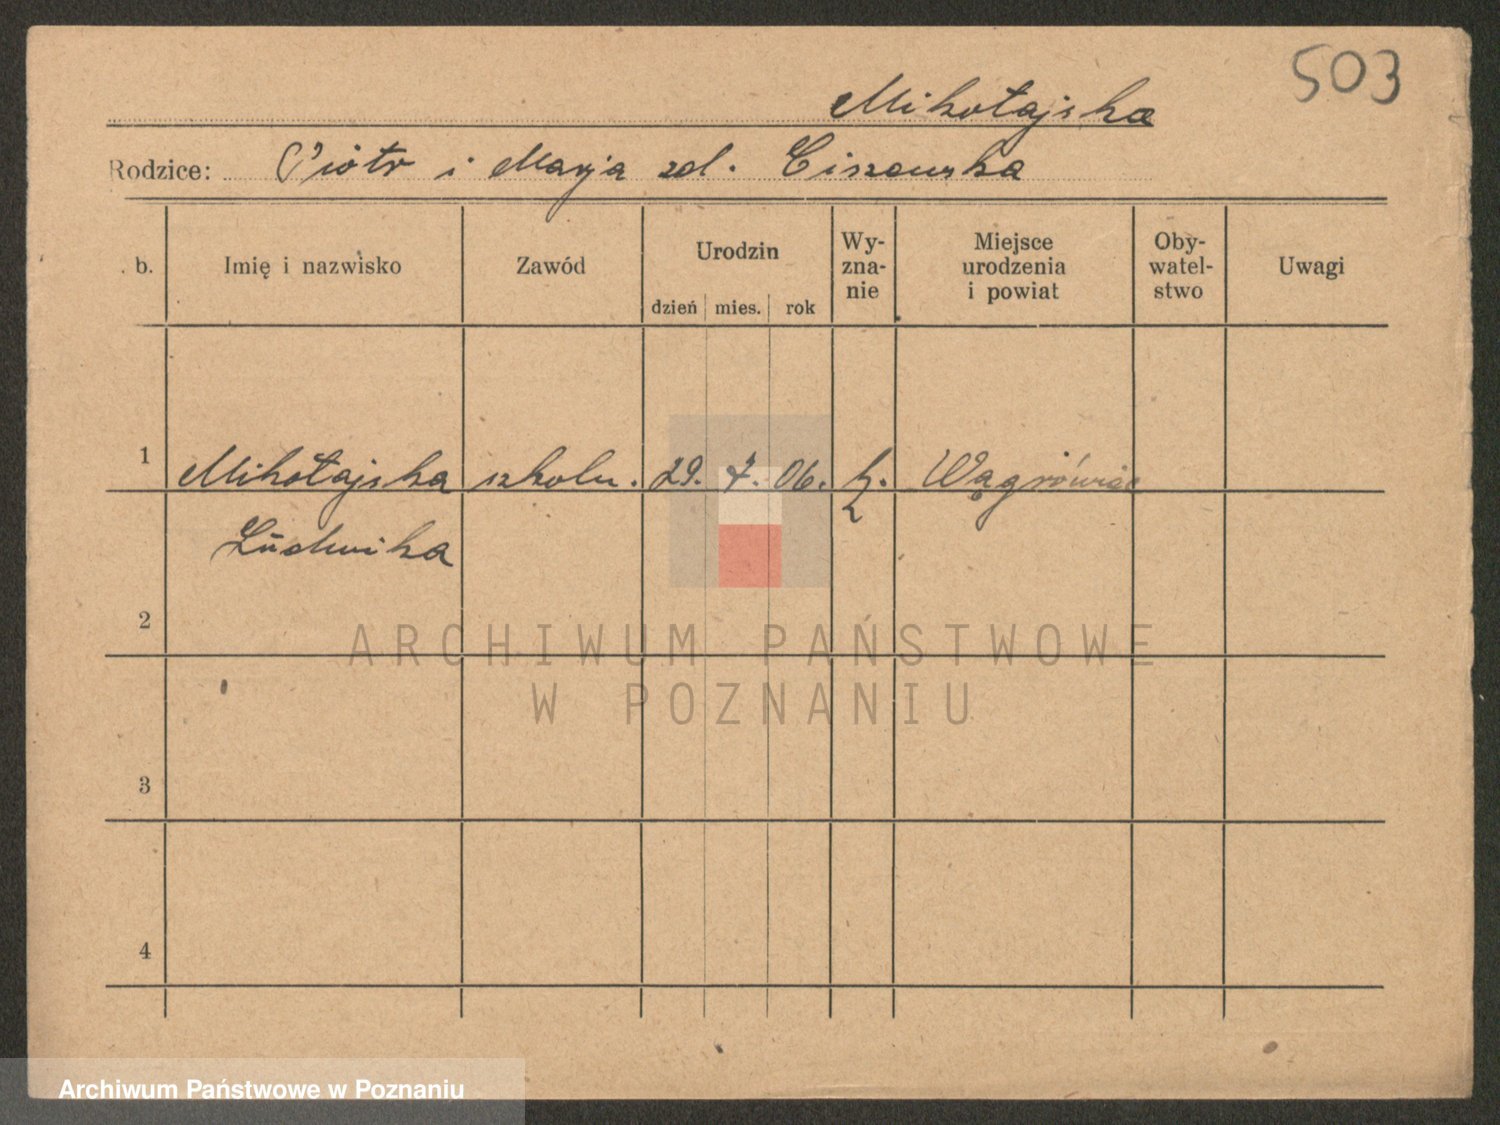 503
Mikołajska
Rodzice: Piotr i Marja zd. Ciszewska
. b. Imię i nazwisko Zawód Urodzin Wy- Miejsce Oby- Uwagi
zna- urodzenia watel-
nie i powiat stwo
dzień mies. rok
1 Mikołajska szkoln. 29. 7. 06. k. Wągrówiec
Ludwika
2
ARCHIWUM PAŃSTWOWE
W POZNANIU
3
4
Archiwum Państwowe w Poznaniu